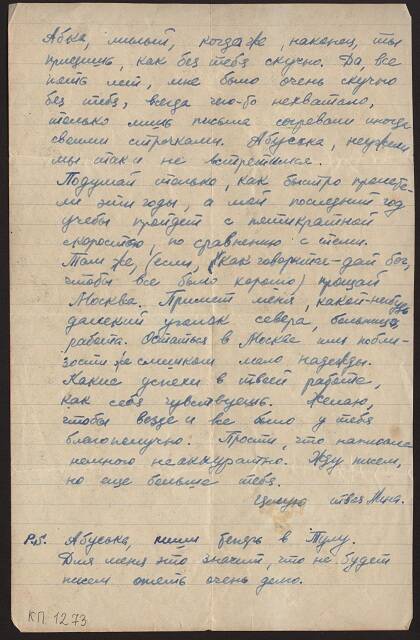 Абка, милый, когда же, наконец, ты
приедешь, как без тебя скучно. Да, все
пять лет, мне было очень скучно
без тебя, всегда чего-то нехватало,
только лишь письма согревали иногда
своими строчками. Абуська, неужели
мы так и не встретимся.
Подумай только, как быстро пролете-
ли эти годы, а мой последний год
учебы пройдет с пятикратной
скоростью, по сравнению с этими.
Там же, (если, как говорится - дай бог,
чтобы все было хорошо) прощай
Москва. Примет меня, какой-нибудь
далекий уголок севера, больница,
работа. Остаться в Москве или побли-
зости же слишком мало надежды.
Какие успехи в твоей работе,
как себя чувствуешь. Желаю,
чтобы везде и все было у тебя
благополучно. Прости, что написала
немного неаккуратно. Жду писем,
но еще больше тебя.
Целую твоя Мина.
P.S. Абуська, пиши теперь в Тулу.
Для меня это значит, что не будет
писем опять очень долго.
КП 1273